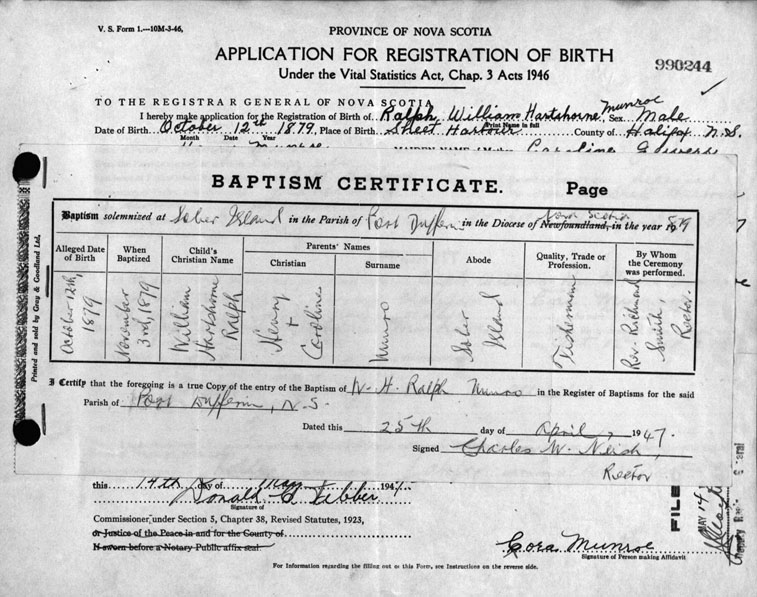 V. S. Form 1.—10M-3-46,
PROVINCE OF NOVA SCOTIA
APPLICATION FOR REGISTRATION OF BIRTH
Under the Vital Statistics Act, Chap. 3 Acts 1946
990244
TO THE REGISTRAR GENERAL OF NOVA SCOTIA
I hereby make application for the Registration of Birth of Ralph William Hartshorne Munroe Sex Male
Print Name in full
Date of Birth October 12th 1879, Place of Birth Sheet Harbour County of Halifax N.S.
Month Day Year
BAPTISM CERTIFICATE. Page
Baptism solemnized at Sober Island in the Parish of Port Dufferin in the Diocese of Newfoundland, Nova Scotia in the year 1879
Alleged Date of Birth
When Baptized
Child's Christian Name
Parents' Names
Christian
Surname
Abode
Quality, Trade or Profession.
By Whom the Ceremony was performed.
October 12th, 1879
November 3rd, 1879
William Hartshorne Ralph
Henry + Caroline
Munro
Sober Island
Fisherman
Rev. Richmond Smith, Rector.
I Certify that the foregoing is a true Copy of the entry of the Baptism of W. H. Ralph Munro in the Register of Baptisms for the said
Parish of Port Dufferin, N.S.
Dated this 25th day of April, 1947.
Signed Charles W. Neish,
Rector
Printed and sold by Gray & Goodland Ltd,
this 14th day of May 194
Donald
Signature of
Commissioner under Section 5, Chapter 38, Revised Statutes, 1923,
or Justice of the Peace in and for the County of
If sworn before a Notary Public affix seal.
Cora Munroe
Signature of Person making Affidavit
For Information regarding the filling out of this Form, see Instructions on the reverse side.
FILE
MAY 14